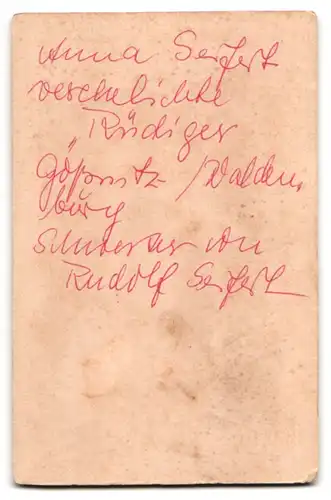 Anna Seifert
verehelichte
„Rüdiger
Gößnitz / Walden
burg
Schwester von
Rudolf Seifert